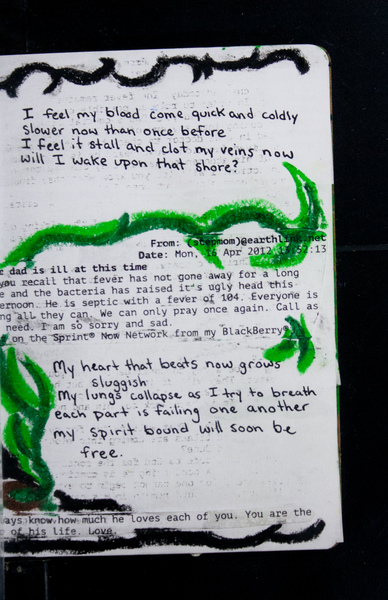 I feel my blood come quick and coldly
Slower now than once before
I feel it stall and clot my veins now
Will I wake upon that shore?
From: (stepmom)@earthlink.net
Date: Mon, 16 Apr 2012 :13
dad is ill at this time
you recall that fever has not gone away for a long
e and the bacteria has raised it's ugly head this
ernoon. He is septic with a fever of 104. Everyone is
ng all they can. We can only pray once again. Call as
need. I am so sorry and sad.
on the Sprint® Now Network from my BlackBerry®
My heart that beats now grows
sluggish
My lungs collapse as I try to breath
each part is failing one another
my spirit bound will soon be
free.
ays know how much he loves each of you. You are the
of his life. Love.